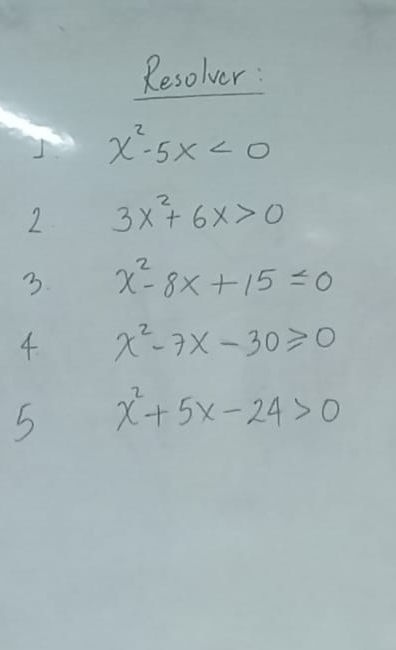 Resolver:
1. x²-5x < 0
2 3x²+ 6x>0
3. x²-8x +15 ≤0
4 x²-7x -30≥0
5 x²+ 5x -24>0